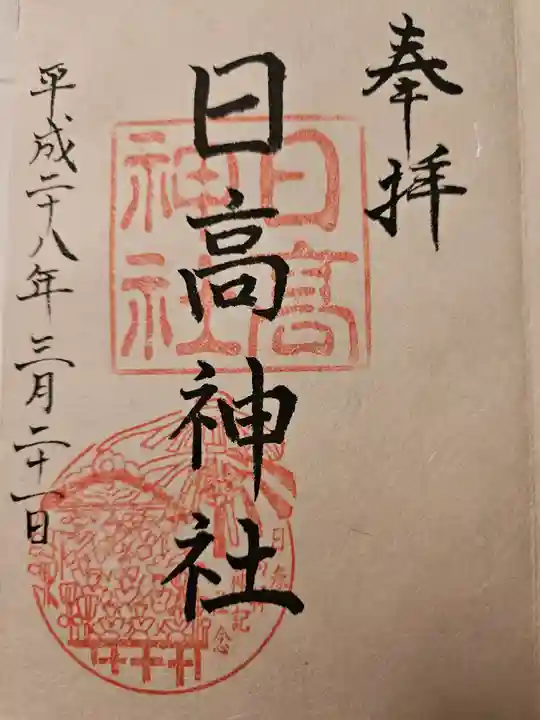 奉拝
日高
神社
日高神社
平成二十八年三月二十一日